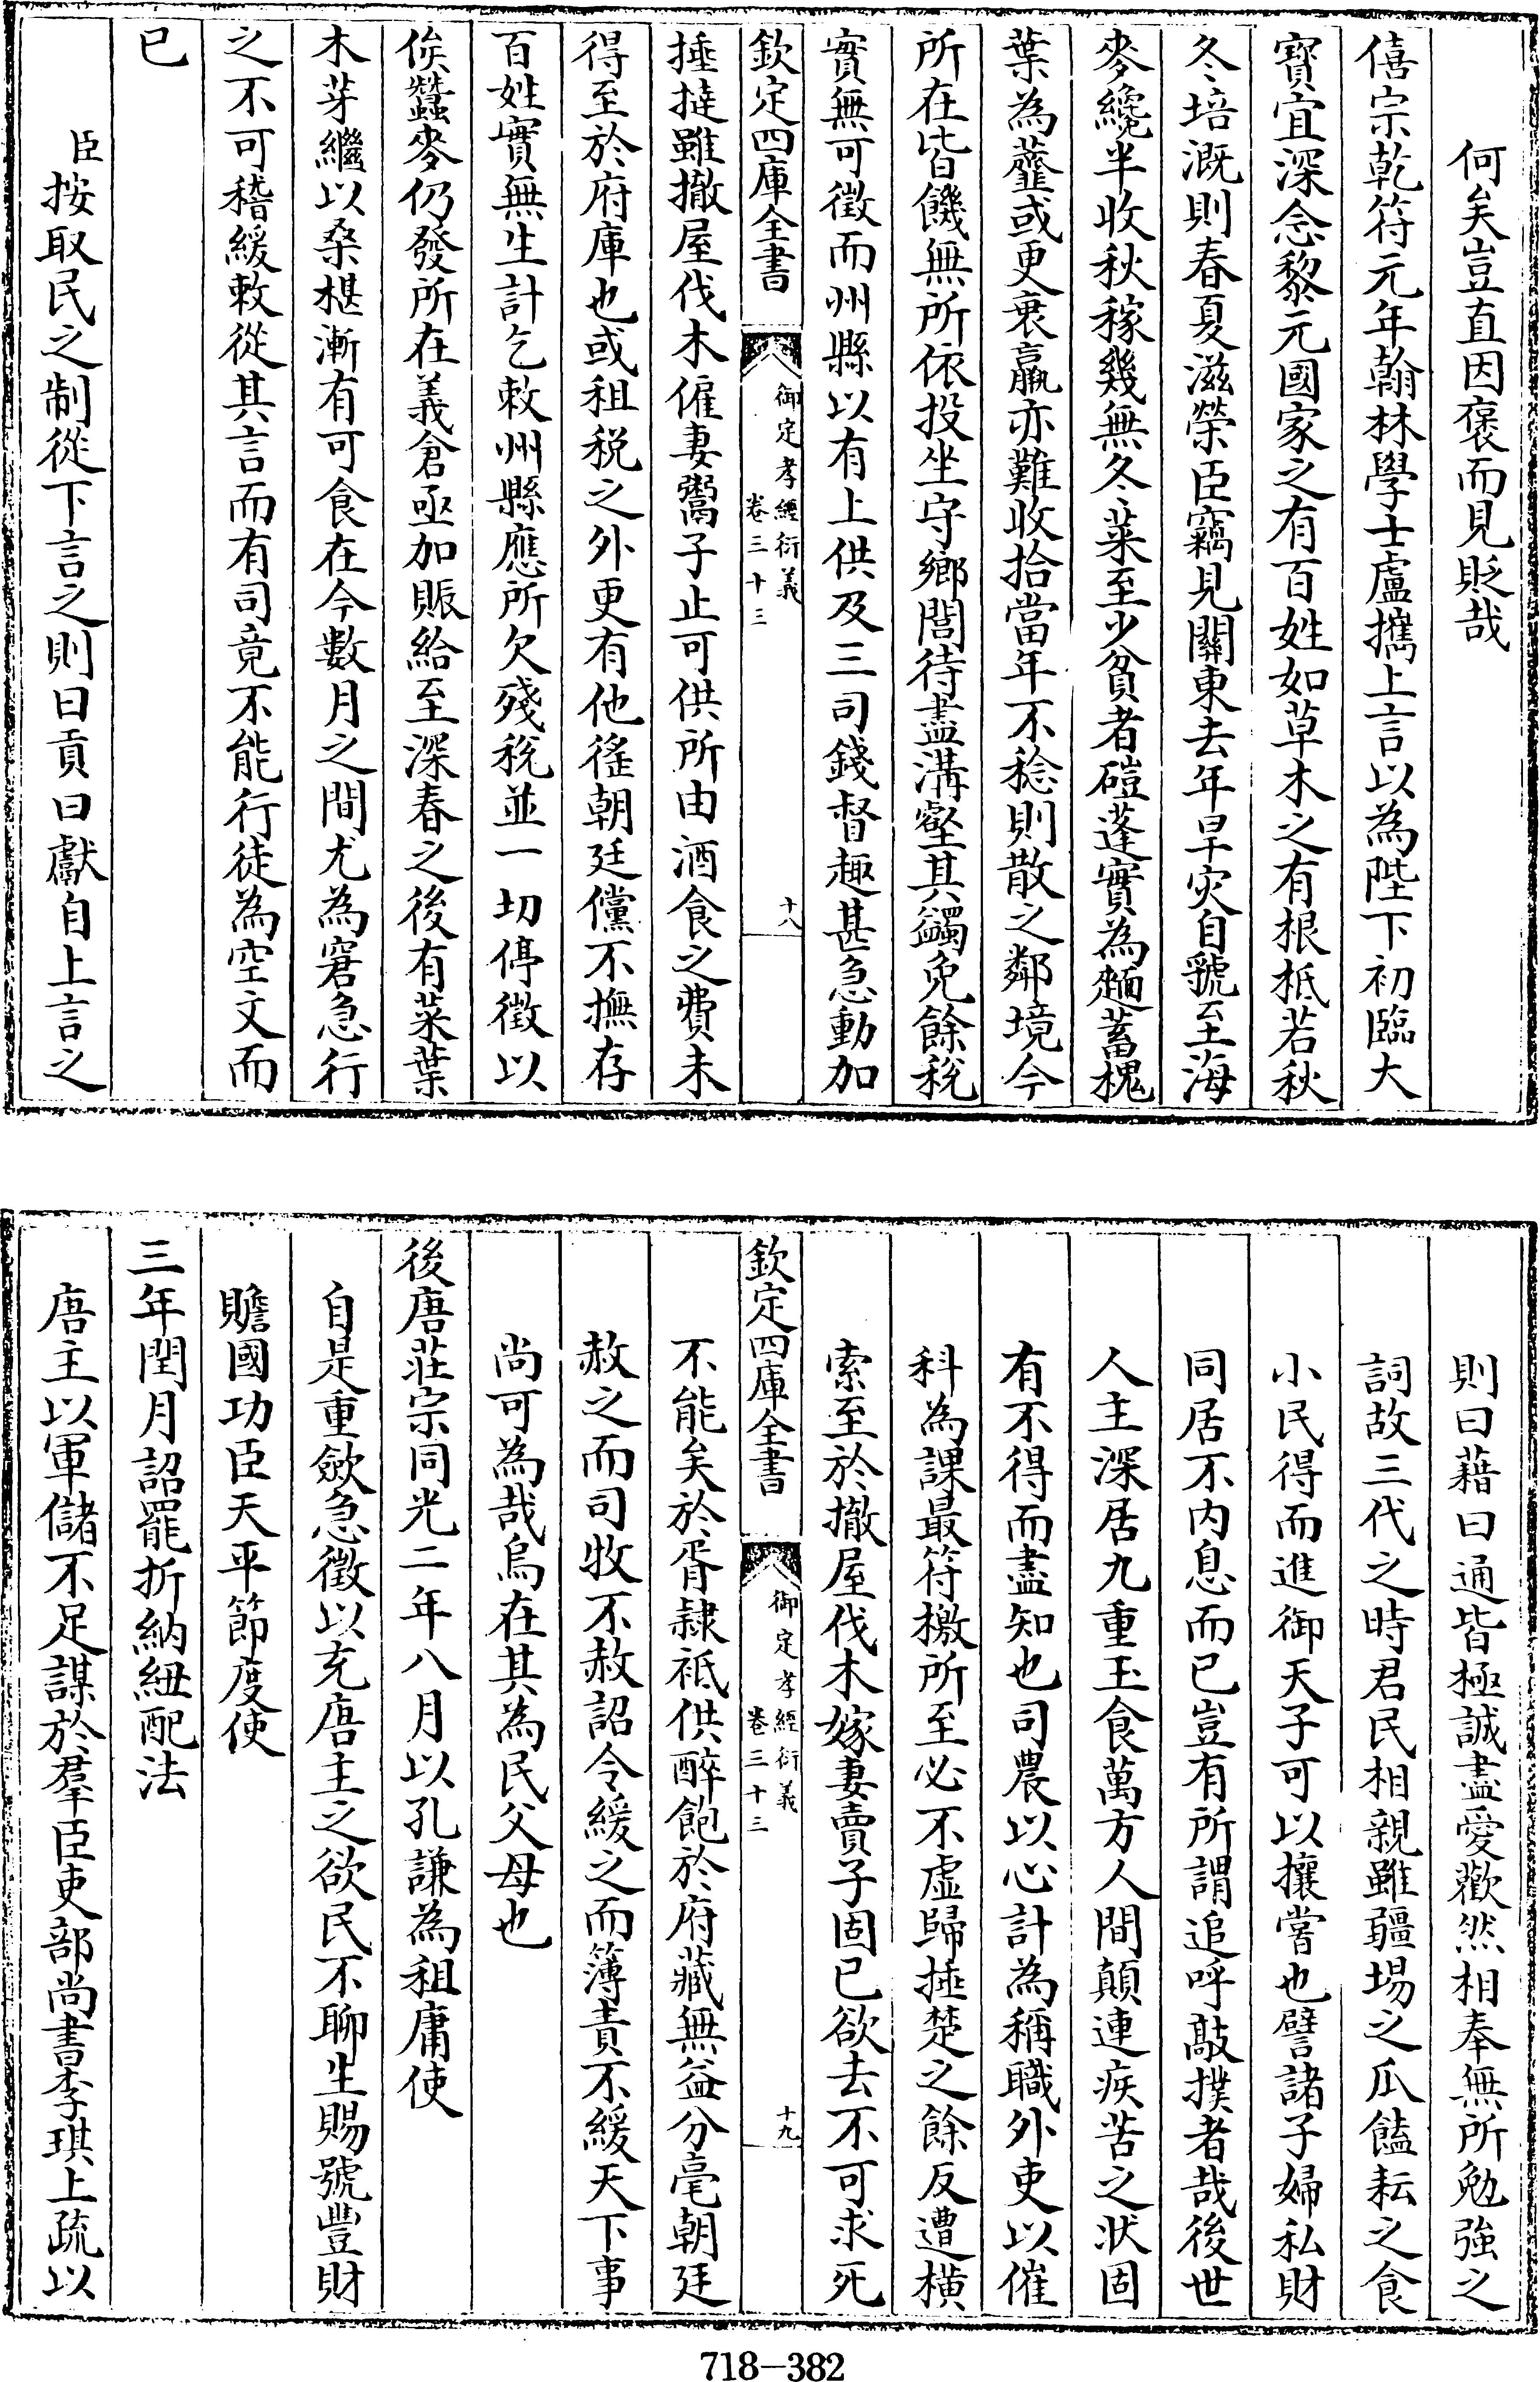 何矣豈直因褒而見貶哉
僖宗乾符元年翰林學士盧攜上言以為陛下初臨大
寶宜深念黎元國家之有百姓如草木之有根柢若秋
冬培溉則春夏滋榮臣竊見關東去年旱灾自虢至海
麥纔半收秋稼幾無冬菜至少貧者磑蓬實為麵蓄槐
葉為虀或更衰羸亦難收拾當年不稔則散之鄰境今
所在皆饑無所依投坐守鄉閭待盡溝壑其蠲免餘税
實無可徵而州縣以有上供及三司錢督趣甚急動加
欽定四庫全書
御定孝經衍義
卷三十三
十八
捶撻雖撤屋伐木僱妻鬻子止可供所由酒食之費未
得至於府庫也或租税之外更有他徭朝廷儻不撫存
百姓實無生計乞敕州縣應所欠殘税並一切停徵以
俟蠶麥仍發所在義倉亟加賑給至深春之後有菜葉
木芽繼以桑椹漸有可食在今數月之間尤為窘急行
之不可稽緩敕從其言而有司竟不能行徒為空文而
已
臣按取民之制從下言之則曰貢曰獻自上言之
則曰藉曰通皆極誠盡愛歡然相奉無所勉強之
詞故三代之時君民相親雖疆埸之瓜饁耘之食
小民得而進御天子可以攘嘗也譬諸子婦私財
同居不内息而已豈有所謂追呼敲撲者哉後世
人主深居九重玉食萬方人間顛連疾苦之狀固
有不得而盡知也司農以心計為稱職外吏以催
科為課最符檄所至必不虛歸捶楚之餘反遭横
索至於撤屋伐木嫁妻賣子固已欲去不可求死
欽定四庫全書
御定孝經衍義
卷三十三
十九
不能矣於胥隸祗供醉飽於府藏無益分毫朝廷
赦之而司牧不赦詔令緩之而簿責不緩天下事
尚可為哉烏在其為民父母也
後唐莊宗同光二年八月以孔謙為租庸使
自是重斂急徵以充唐主之欲民不聊生賜號豐財
贍國功臣天平節度使
三年閏月詔罷折納紐配法
唐主以軍儲不足謀於羣臣吏部尚書李琪上疏以
718-382